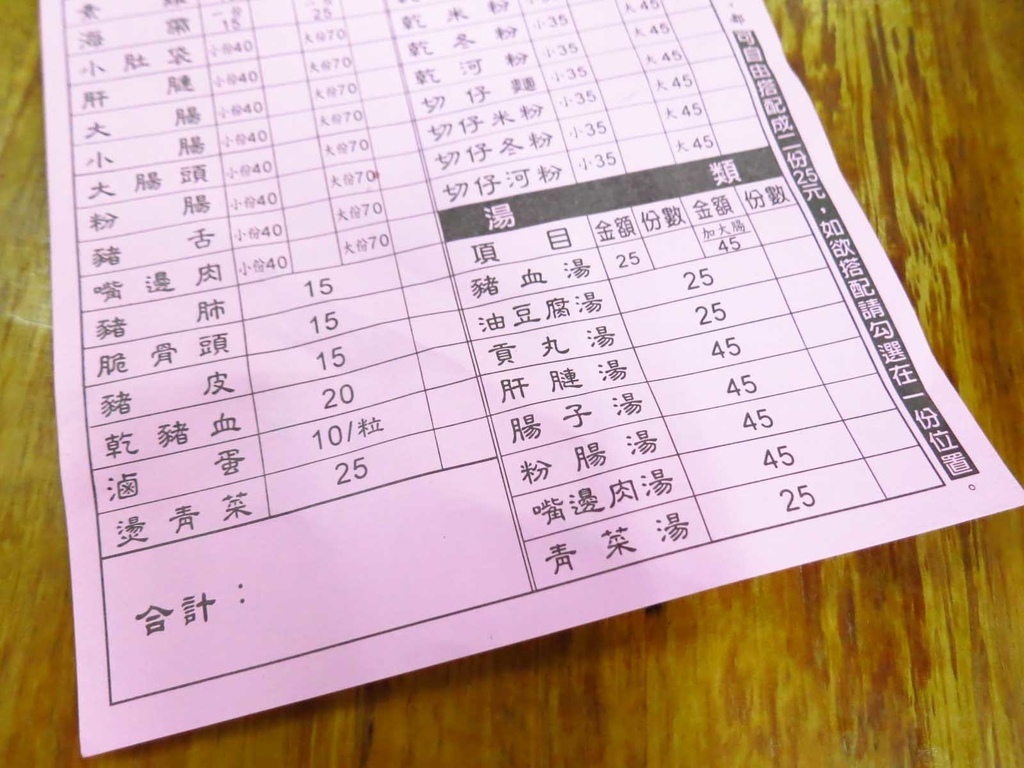 海帶 15
小肚袋 小份40 大份70
肝膁 小份40 大份70
大腸 小份40 大份70
小腸 小份40 大份70
大腸頭 小份40 大份70
粉腸 小份40 大份70
豬舌 小份40 大份70
嘴邊肉 小份40 大份70
豬肺 15
脆骨頭 15
豬皮 15
乾豬血 20
滷蛋 10/粒
燙青菜 25
合計：
乾米粉 小35 大45
乾冬粉 小35 大45
乾河粉 小35 大45
切仔麵 小35 大45
切仔米粉 小35 大45
切仔冬粉 小35 大45
切仔河粉 小35 大45
湯類
項目 金額 份數 金額 份數
豬血湯 25 加大腸 45
油豆腐湯 25
貢丸湯 25
肝膁湯 45
腸子湯 45
粉腸湯 45
嘴邊肉湯 45
青菜湯 25
，都可自由搭配成一份25元，如欲搭配請勾選在一份位置。